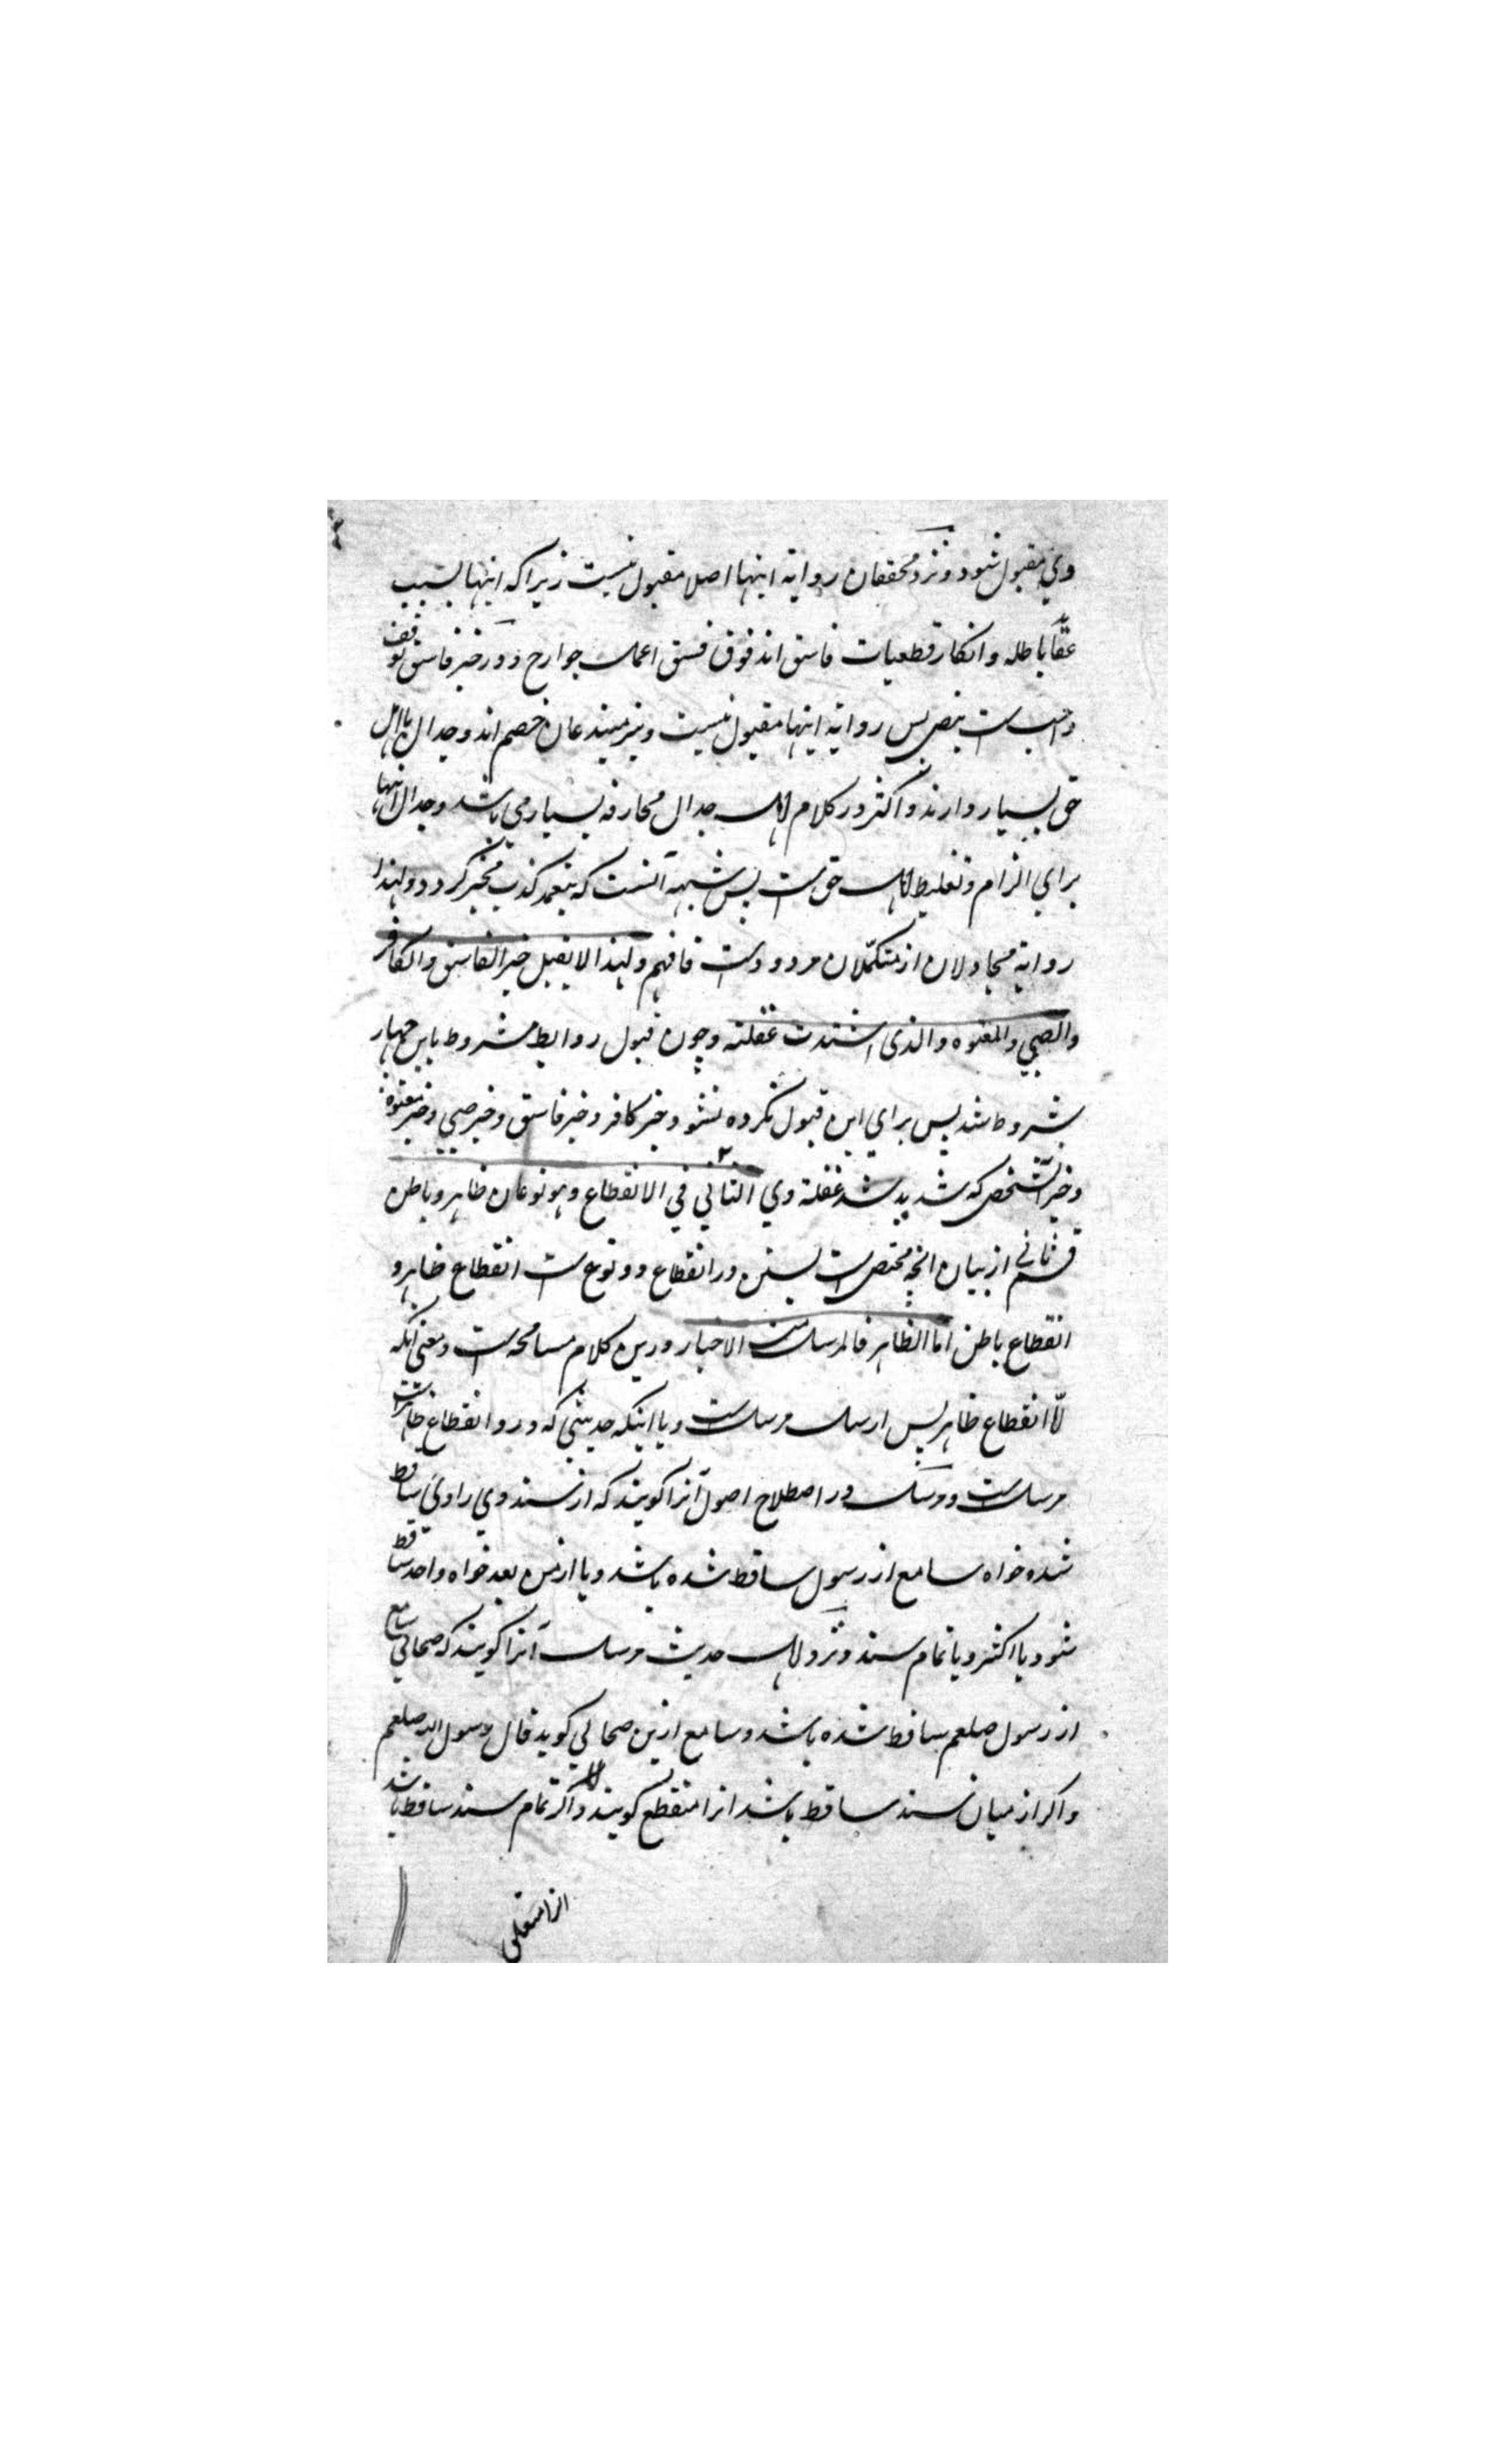 وي مقبول شود و نزد محققان رواية اينها اصلا مقبول نيست زيراكه اينها بسبب
عقايد باطله و انكار قطعيات فاسق اند فوق فسق اعمال جوارح و در خبر فاسق توقف
واجب است بنص پس رواية اينها مقبول نيست و نيز مبتدعان خصم اند و جدال با اهل
حق بسيار دارند و اكثر در كلام اهل جدال مجازفه بسيار مي باشد و جدال اينها
براي الزام و تغليط اهل حق است پس شبهه آنست كه بتعمد كذب مخبر گردد و لهذا
رواية مجادلان از متكلمان مردود است فافهم ولهذا لا يقبل خبر الفاسق والكافر
والصبي والمعتوه والذي اشتدت غفلته و چون قبول روايط مشروط باين چهار
شروط شد پس براي اين قبول نكرده نشود خبر كافر و خبر فاسق و خبر صبي و خبر معتوه
و خبر شخص كه شديد شد غفلة وي الثاني في الانقطاع وهو نوعان ظاهر وباطن
قسم ثاني از بيان انچه مختص است بسنن در انقطاع و دو نوع است انقطاع ظاهر و
انقطاع باطن اما الظاهر فالمرسل من الاخبار درين كلام مسامحه است و معني آنكه
لا انقطاع ظاهر پس ارسال مرسل است و يا اينكه حديثي كه درو انقطاع ظاهر است
مرسل است و مرسل در اصطلاح اصول آنرا گويند كه از سند وي راوي ساقط
شده خواه سامع از رسول ساقط شده باشد و يا از من بعد خواه واحد ساقط
شود يا اكثر و يا تمام سند و نزد اهل حديث مرسل آنرا گويند كه صحابي سامع
از رسول صلعم ساقط شده باشد و سامع ازين صحابي گويد قال رسول الله صلعم
و اگر از ميان سند ساقط باشد انرا منقطع گويند و اگر تمام سند ساقط باشد
انرا معلق